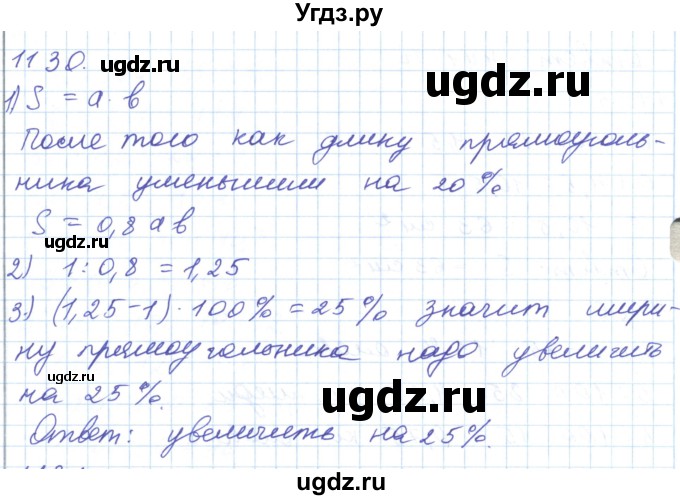 Угдз.ру
1130.
ugdz.ru
1) S = a · b
ugdz.ru
После того как длину прямоуголь-
ника уменьшили на 20%
ugdz.ru
S = 0,8 ab
ugdz.ru
2) 1 : 0,8 = 1,25
3) (1,25-1) · 100% = 25% значит шири-
ну прямоугольника надо увеличить
ugdz.ru
на 25%.
ugdz.ru
Ответ: увеличить на 25%.